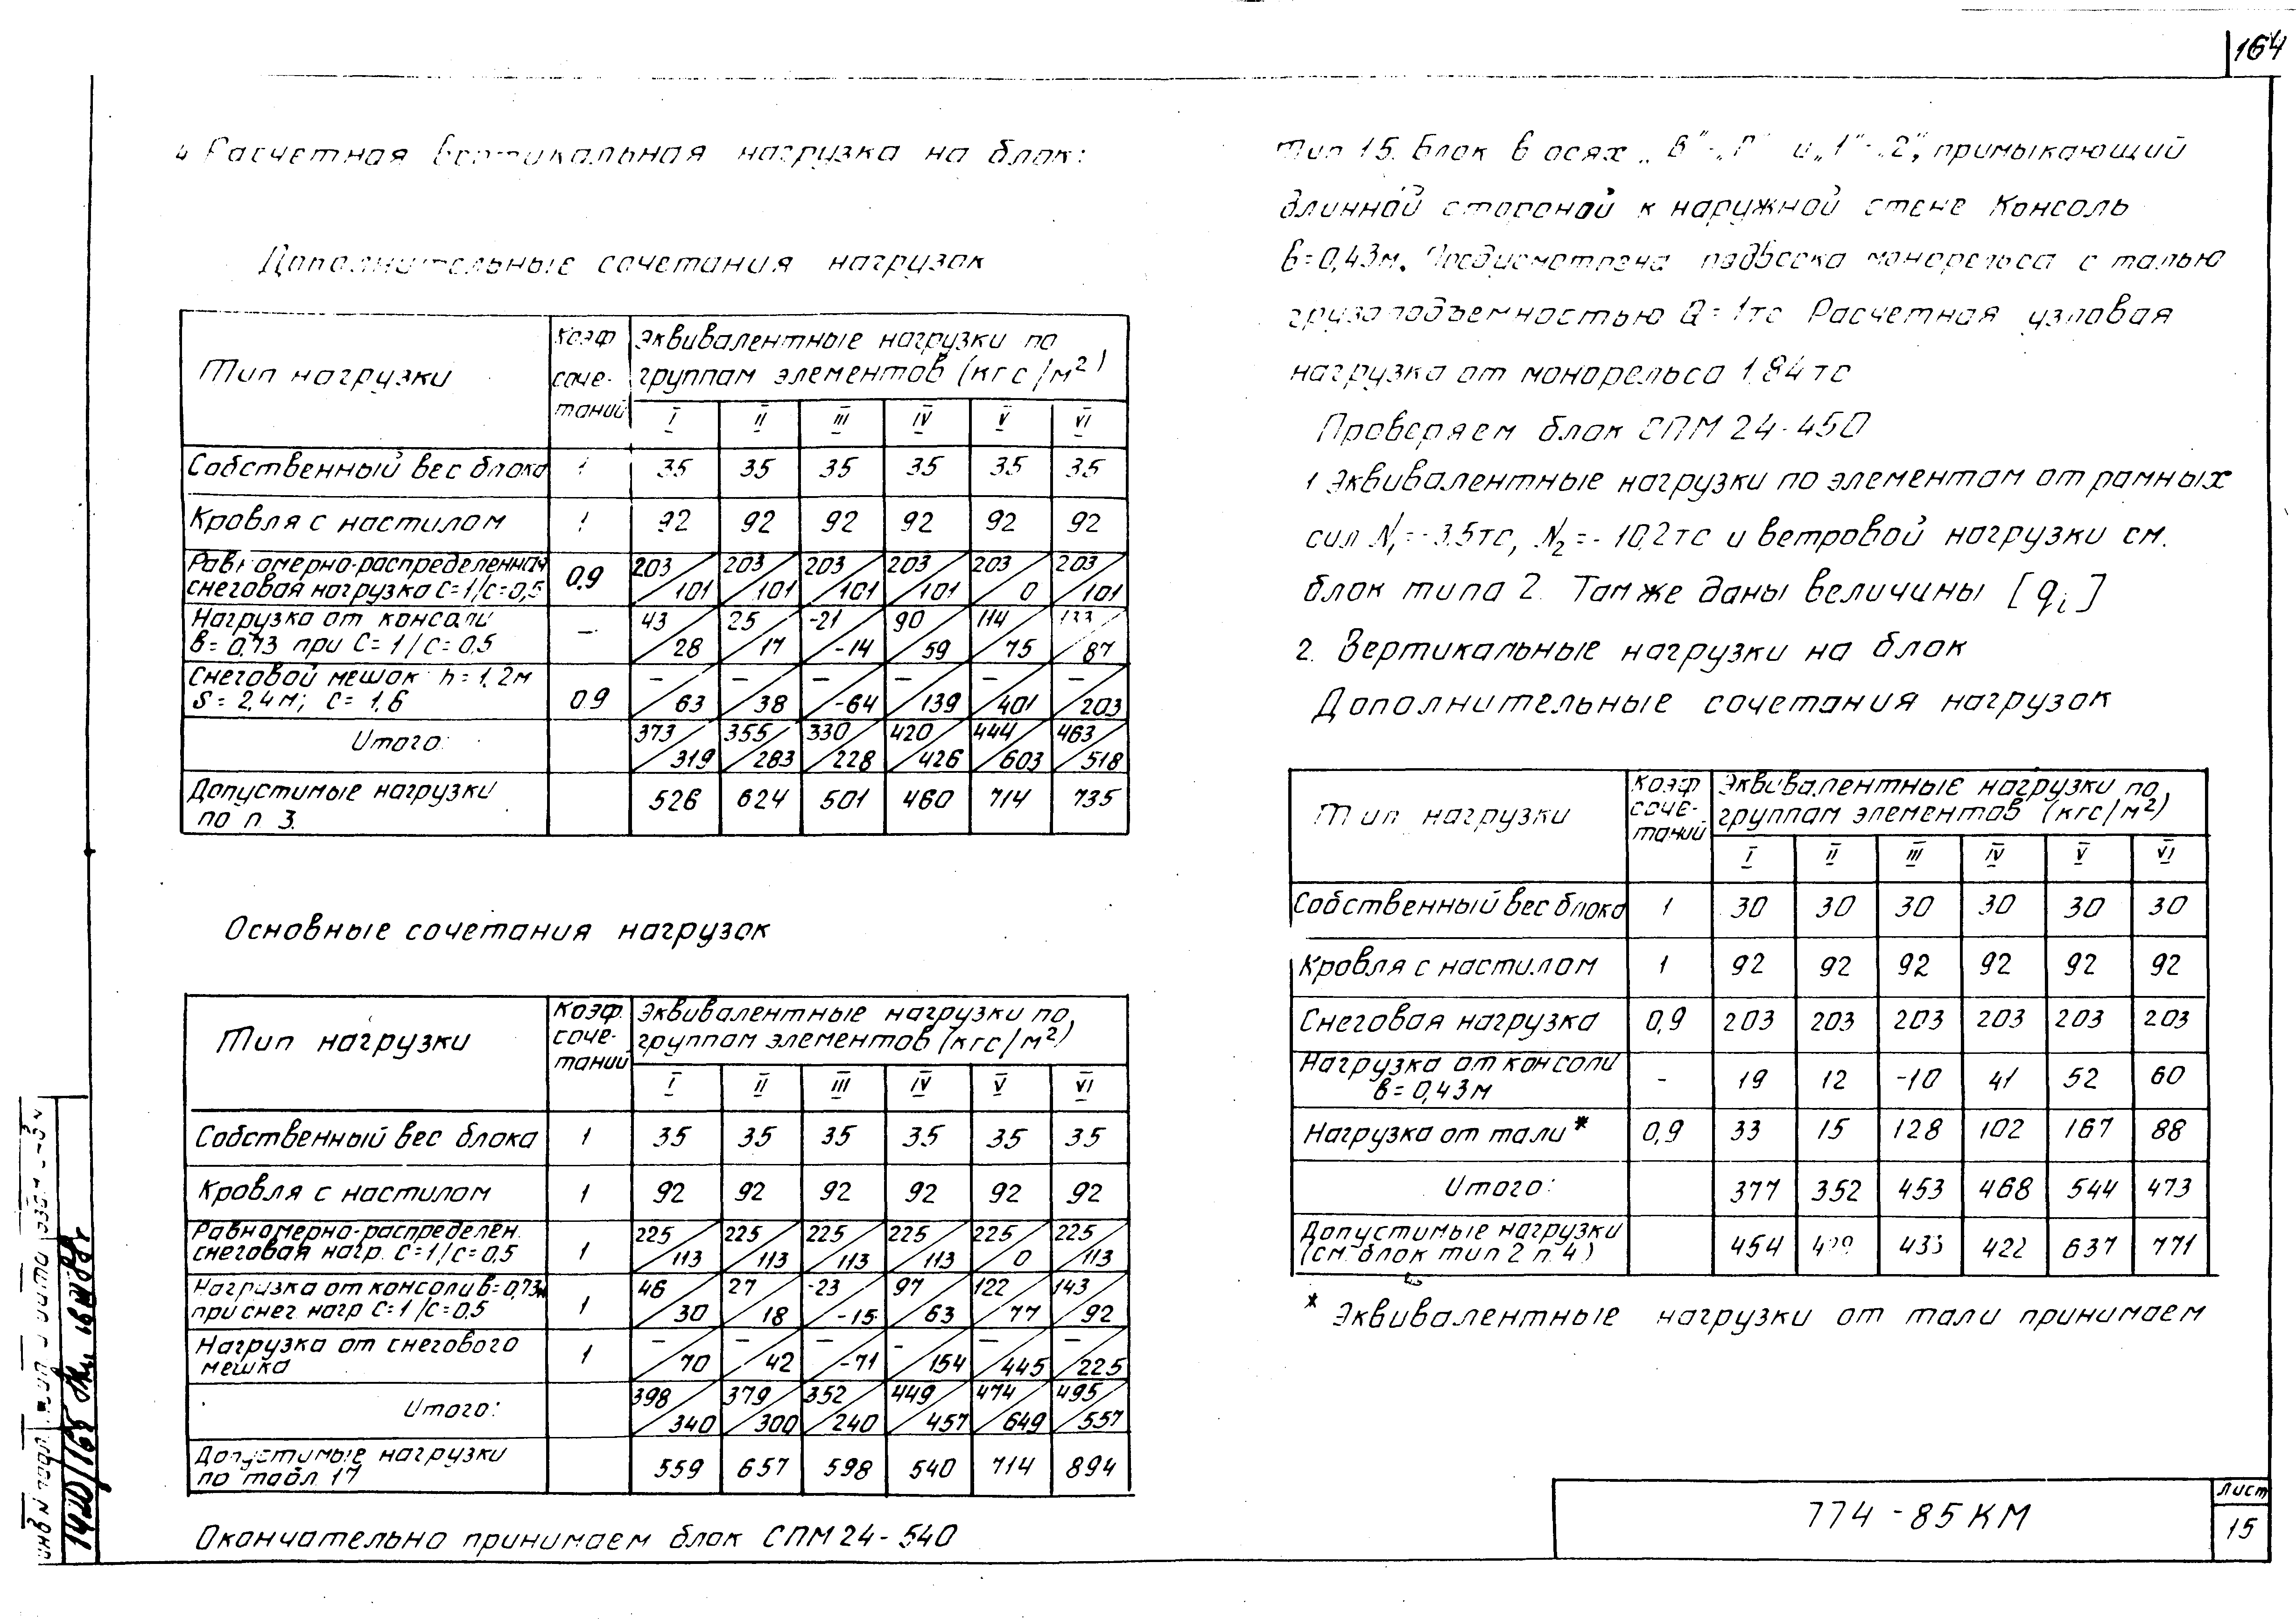 164
4 Расчетная вертикальная нагрузка на блок:
Дополнительные сочетания нагрузок
Тип нагрузки
Коэф соче- таний
Эквивалентные нагрузки по
группам элементов (кгс/м²)
I II III IV V VI
Собственный вес блока 1 35 35 35 35 35 35
Кровля с настилом 1 92 92 92 92 92 92
Равномерно-распределенная 203 203 203 203 203 203
снеговая нагрузка С=1/с=0,5 0.9 101 101 101 101 0 101
Нагрузка от консоли 43 25 -21 90 114 133
в=0,73 при С=1/с=0.5 – 28 17 -14 59 75 87
Снеговой мешок h=1,2м – – – – – –
S=2,4м; с=1,6 0.9 63 38 -64 139 401 203
Итого: 373 355 330 420 444 463
319 283 228 426 603 518
Допустимые нагрузки 526 624 501 460 714 735
по п. 3.
Основные сочетания нагрузок
Тип нагрузки
Коэф. соче- таний
Эквивалентные нагрузки по
группам элементов (кгс/м²)
I II III IV V VI
Собственный вес блока 1 35 35 35 35 35 35
Кровля с настилом 1 92 92 92 92 92 92
Равномерно-распределен. 225 225 225 225 225 225
снеговая нагр. С=1/с=0,5 1 113 113 113 113 0 113
Нагрузка от консоли в=0,73м 46 27 -23 97 122 143
при снег. нагр С=1/с=0,5 1 30 18 -15 63 77 92
Нагрузка от снегового – – – – – –
мешка 1 70 42 -71 154 445 225
Итого: 398 379 352 449 474 495
340 300 240 457 649 557
Допустимые нагрузки
по табл. 17 559 657 598 540 714 894
Окончательно принимаем блок СПМ 24-540
Тип 15. Блок в осях „В"-„Г" и „1"-„2", примыкающий
длинной стороной к наружной стене Консоль
в=0,43м. Предусмотрена подвеска монорельса с талью
грузоподъемностью Q=1тс Расчетная узловая
нагрузка от монорельса 1.84 тс
Проверяем блок СПМ 24-450
1 Эквивалентные нагрузки по элементам от рамных
сил N₁=-3.5тс, N₂=-10,2тс и ветровой нагрузки см.
блок типа 2. Там же даны величины [qᵢ]
2. Вертикальные нагрузки на блок
Дополнительные сочетания нагрузок
Тип нагрузки
Коэф соче- таний
Эквивалентные нагрузки по
группам элементов (кгс/м²)
I II III IV V VI
Собственный вес блока 1 30 30 30 30 30 30
Кровля с настилом 1 92 92 92 92 92 92
Снеговая нагрузка 0,9 203 203 203 203 203 203
Нагрузка от консоли
в=0,43м – 19 12 -10 41 52 60
Нагрузка от тали* 0,9 33 15 128 102 167 88
Итого: 377 352 453 468 544 473
Допустимые нагрузки
(см. блок тип 2 п. 4) 454 433 422 637 771
* Эквивалентные нагрузки от тали принимаем
774-85КМ
Лист
15
1420/165